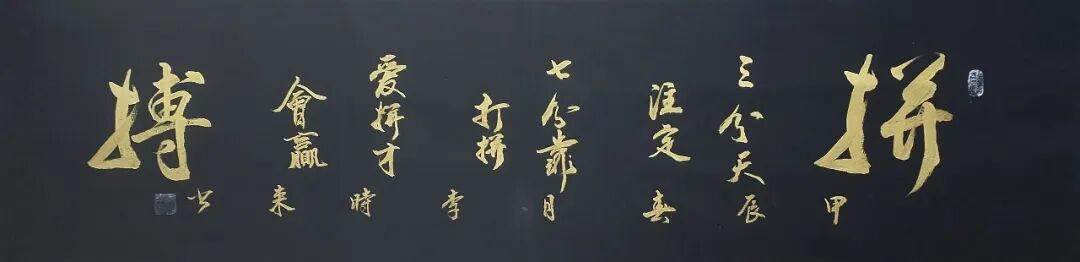 拼
三分天
注定
七分靠
打拼
爱拼才
會贏
搏
甲辰春月李時来书